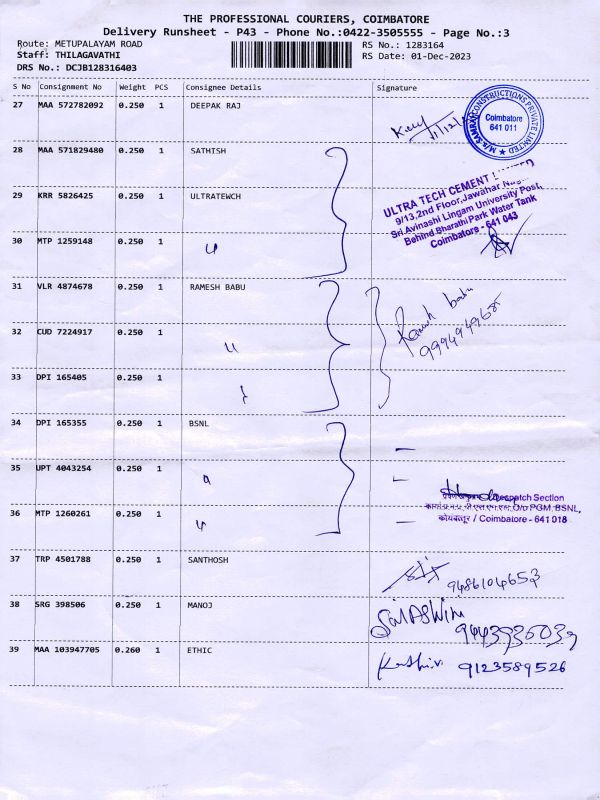 THE PROFESSIONAL COURIERS, COIMBATORE
Delivery Runsheet - P43 - Phone No.:0422-3505555 - Page No.:3
Route: METUPALAYAM ROAD RS No.: 1283164
Staff: THILAGAVATHI RS Date: 01-Dec-2023
DRS No.: DCJB128316403
S No Consignment No Weight PCS Consignee Details Signature
27 MAA 572782092 0.250 1 DEEPAK RAJ
M/s SAMRAJ CONSTRUCTIONS PRIVATE LIMITED
Coimbatore
641 011
28 MAA 571829480 0.250 1 SATHISH
29 KRR 5826425 0.250 1 ULTRATEWCH
ULTRA TECH CEMENT
9/13,2nd Floor,Jawahar
Sri Avinashi Lingam University Post,
Behind Bharathi Park Water Tank
Coimbatore - 641 043
30 MTP 1259148 0.250 1 "
31 VLR 4874678 0.250 1 RAMESH BABU
Ramesh babu
32 CUD 7224917 0.250 1 "
33 DPI 165405 0.250 1
34 DPI 165355 0.250 1 BSNL
35 UPT 4043254 0.250 1 "
36 MTP 1260261 0.250 1 "
Despatch Section
O/o PGM, BSNL,
कोयंबत्तूर / Coimbatore - 641 018
37 TRP 4501788 0.250 1 SANTHOSH
9486104653
38 SRG 398506 0.250 1 MANOJ
Sai ASWIN
39 MAA 103947705 0.260 1 ETHIC
9123589526